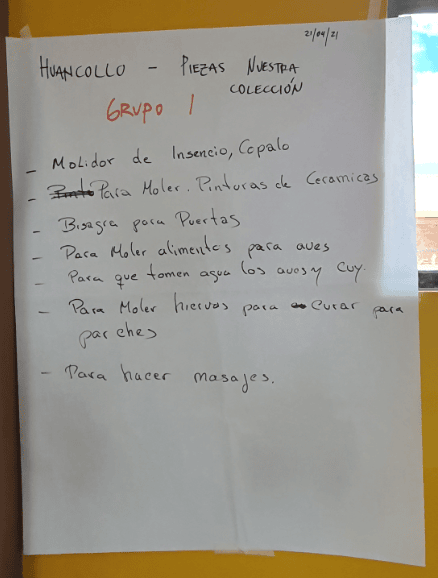 21/04/21
HUANCOLLO – PIEZAS NUESTRA
COLECCIÓN
GRUPO 1
– Molidor de Insencio, Copalo
– Para Moler. Pinturas de Ceramicas
– Bisagra para Puertas
– Para Moler alimentos para aves
– Para que tomen agua los aves y Cuy.
– Para Moler hiervas para curar para
parches
– Para hacer masajes.